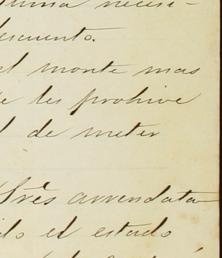 neces-
descuento.
el monte mas
les prohive
de meter
Sres arrendata
el estado